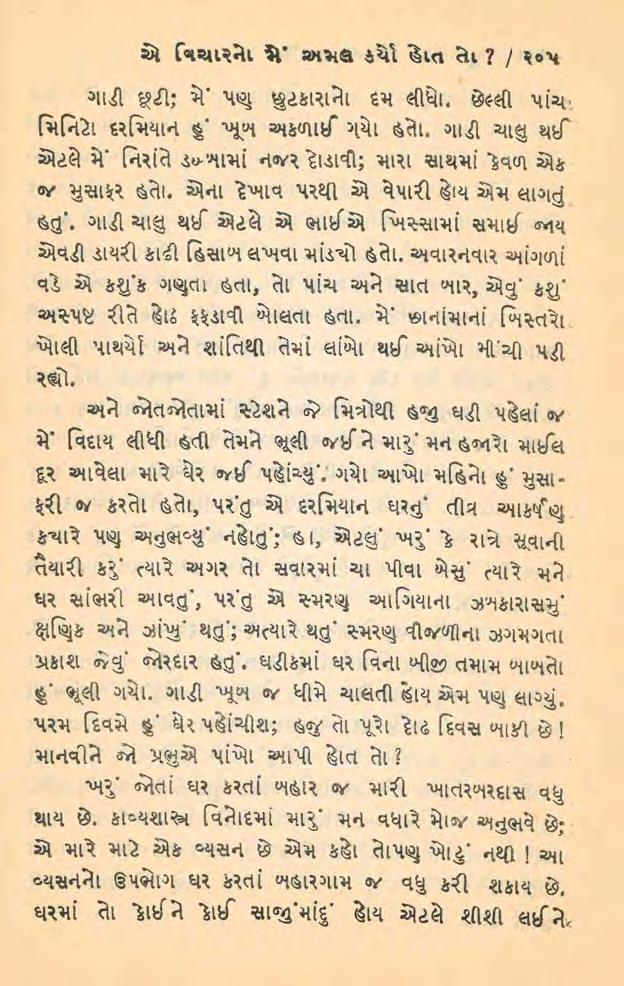 એ વિચારનો મેં અમલ કર્યો હોત તો ? / ૨૦૫
ગાડી છૂટી; મેં પણ છુટકારાનો દમ લીધો. છેલ્લી પાંચ
મિનિટો દરમિયાન હું ખૂબ અકળાઈ ગયો હતો. ગાડી ચાલુ થઈ
એટલે મેં નિરાંતે ડબ્બામાં નજર દોડાવી; મારા સાથમાં કેવળ એક
જ મુસાફર હતો. એના દેખાવ પરથી એ વેપારી હોય એમ લાગતું
હતું. ગાડી ચાલુ થઈ એટલે એ ભાઈએ ખિસ્સામાં સમાઈ જાય
એવડી ડાયરી કાઢી હિસાબ લખવા માંડ્યો હતો. અવારનવાર આંગળાં
વડે એ કશુંક ગણતા હતા, તો પાંચ અને સાત બાર, એવું કશું
અસ્પષ્ટ રીતે હોઠ ફફડાવી બોલતા હતા. મેં છાનાંમાનાં બિસ્તરો
ખોલી પાથર્યો અને શાંતિથી તેમાં લાંબો થઈ આંખો મીંચી પડી
રહ્યો.
અને જોતજોતામાં સ્ટેશને જે મિત્રોથી હજી ઘડી પહેલાં જ
મેં વિદાય લીધી હતી તેમને ભૂલી જઈને મારું મન હજારો માઈલ
દૂર આવેલા મારે ઘેર જઈ પહોંચ્યું. ગયો આખો મહિનો હું મુસા-
ફરી જ કરતો હતો, પરંતુ એ દરમિયાન ઘરનું તીવ્ર આકર્ષણ
ક્યારે પણ અનુભવ્યું નહોતું; હા, એટલું ખરું કે રાત્રે સૂવાની
તૈયારી કરું ત્યારે અગર તો સવારમાં ચા પીવા બેસું ત્યારે મને
ઘર સાંભરી આવતું, પરંતુ એ સ્મરણ આગિયાના ઝબકારાસમું
ક્ષણિક અને ઝાંખું થતું; અત્યારે થતું સ્મરણ વીજળીના ઝગમગતા
પ્રકાશ જેવું જોરદાર હતું. ઘડીકમાં ઘર વિના બીજી તમામ બાબતો
હું ભૂલી ગયો. ગાડી ખૂબ જ ધીમે ચાલતી હોય એમ પણ લાગ્યું.
પરમ દિવસે હું ઘેર પહોંચીશ; હજુ તો પૂરો દોઢ દિવસ બાકી છે !
માનવીને જો પ્રભુએ પાંખો આપી હોત તો ?
ખરું જોતાં ઘર કરતાં બહાર જ મારી ખાતરબરદાસ વધુ
થાય છે. કાવ્યશાસ્ત્ર વિનોદમાં મારું મન વધારે મોજ અનુભવે છે;
એ મારે માટે એક વ્યસન છે એમ કહો તોપણ ખોટું નથી ! આ
વ્યસનનો ઉપભોગ ઘર કરતાં બહારગામ જ વધુ કરી શકાય છે.
ઘરમાં તો કોઈને કોઈ સાજુંમાંદું હોય એટલે શીશી લઈને